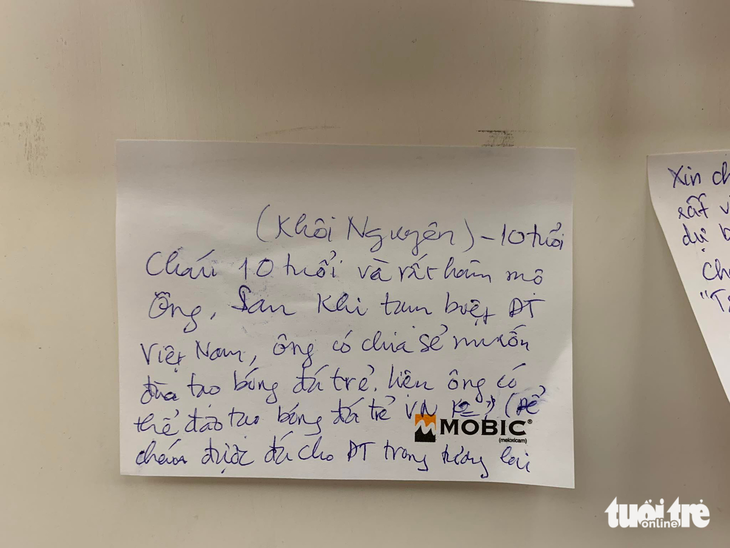 tuổi trẻ
online
(Khôi Nguyên) - 10 tuổi
Cháu 10 tuổi và rất hâm mộ
Ông, Sau khi tạm biệt ĐT
Việt Nam, ông có chia sẻ muốn
đào tạo bóng đá trẻ. liệu ông có
thể đào tạo bóng đá trẻ VN để
cháu được đá cho ĐT trong tương lai
MOBIC®
(meloxicam)
Xin ch
rất v
dự b
Ch
"T
tuổi trẻ
online